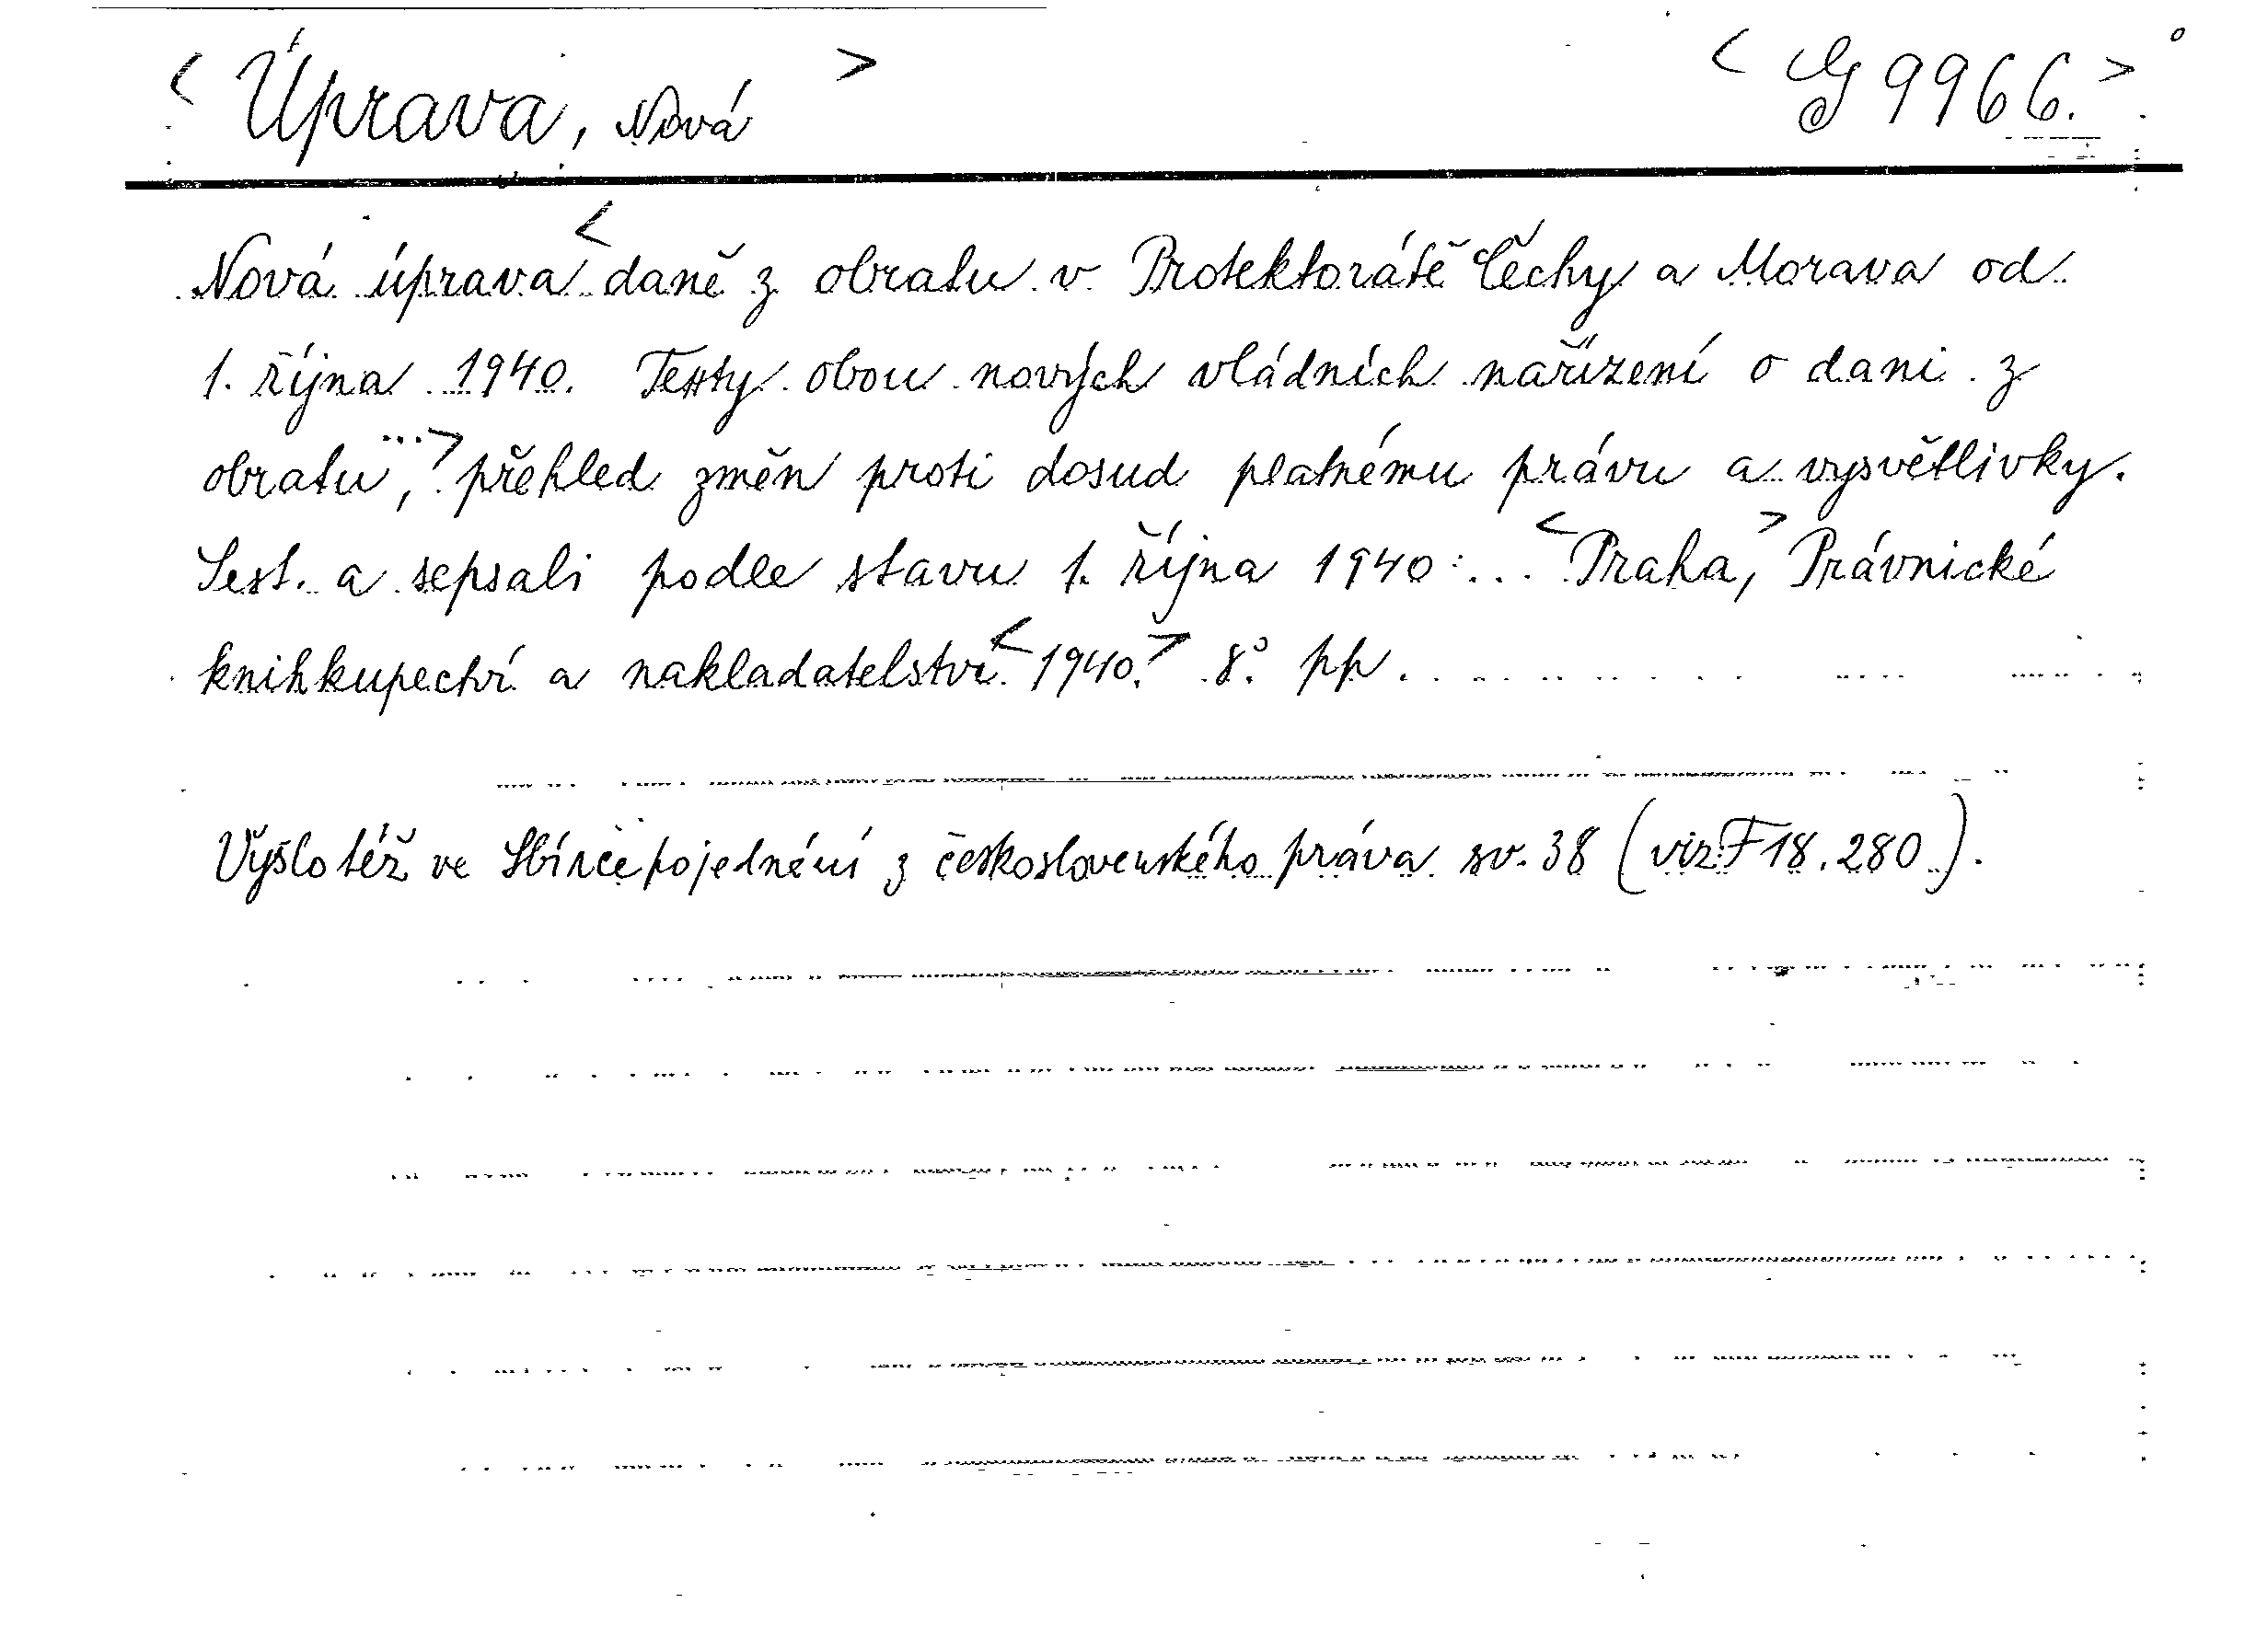 < Úprava, Nová > < G 9966. >
Nová úprava < daně z obratu v Protektorátě Čechy a Morava od
1. října 1940. Texty obou nových vládních nařízení o dani z
obratu, ...> přehled změn proti dosud platnému právu a vysvětlivky.
Sest. a sepsali podle stavu 1. října 1940: ... < Praha, > Právnické
knihkupectví a nakladatelství < 1940. > 8°. pp.
Vyšlo též ve Sbírce pojednání z československého práva sv. 38 (viz: F 18.280).